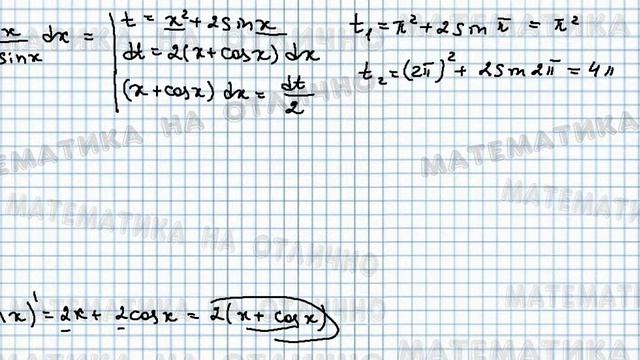 x/sinx dx = | t = x² + 2sinx
dt = 2(x + cosx) dx
(x + cosx) dx = dt/2
t₁ = π² + 2sin π = π²
t₂ = (2π)² + 2sin 2π = 4π
МАТЕМАТИКА НА ОТЛИЧНО
МАТЕМАТИКА
МАТЕМАТИКА НА ОТЛИЧНО
МАТЕМАТИКА
x)' = 2x + 2cosx = 2(x + cosx)
МАТЕМАТИКА НА ОТЛИЧНО
МАТЕМАТИКА